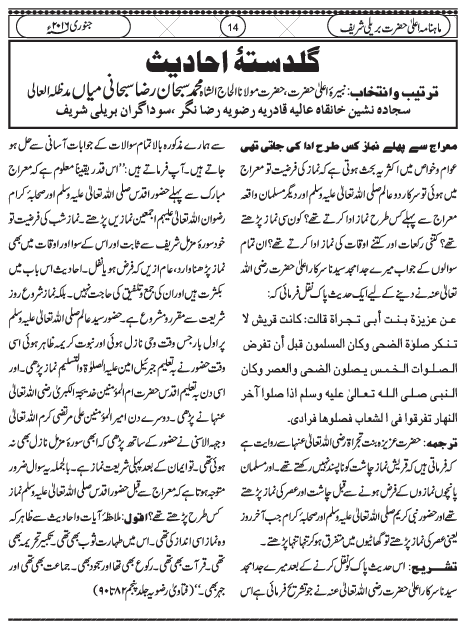 ماہنامہ اعلیٰ حضرت بریلی شریف
14
جنوری ۲۰۱۶ء
گلدستۂ احادیث
ترتیب و انتخاب: نبیرۂ اعلیٰ حضرت، حضرت مولانا الحاج الشاہ محمد سبحان رضا سبحانی میاں مدظلہ العالی
سجادہ نشین خانقاہ عالیہ قادریہ رضویہ رضا نگر، سوداگران بریلی شریف
معراج سے پہلے نماز کس طرح ادا کی جاتی تھی
عوام وخواص میں اکثر یہ بحث ہوتی ہے کہ نماز کی فرضیت تو معراج
میں ہوئی تو سرکار دو عالم صلی اللہ تعالیٰ علیہ وسلم اور دیگر مسلمان واقعہ
معراج سے پہلے کس طرح نماز ادا کرتے تھے؟ کون سی نماز پڑھتے
تھے؟ کتنی رکعات اور کتنے اوقات کی نماز ادا کرتے تھے؟ ان تمام
سوالوں کے جواب میرے جد امجد سیدنا سرکار اعلیٰ حضرت رضی اللہ
تعالیٰ عنہ نے دینے کے لیے ایک حدیث پاک نقل فرمائی کہ:
عن عزيزة بنت أبي تجراة قالت: كانت قريش لا
تنكر صلوٰة الضحى وكان المسلمون قبل أن تفرض
الصلوات الخمس يصلون الضحى والعصر وكان
النبي صلى الله تعالىٰ عليه وسلم اذا صلوا آخر
النهار تفرقوا في الشعاب فصلوها فرادى.
ترجمہ: حضرت عزیزہ بنت تجراۃ رضی اللہ تعالیٰ عنہا سے روایت ہے
کہ فرماتی ہیں کہ قریش نماز چاشت کو ناپسند نہیں رکھتے تھے۔ اور مسلمان
پانچوں نمازوں کے فرض ہونے سے قبل چاشت اور عصر کی نماز پڑھتے
تھے اور حضور نبی کریم صلی اللہ تعالیٰ علیہ وسلم اور صحابہ کرام جب آخر روز
یعنی عصر کی نماز پڑھتے تو گھاٹیوں میں متفرق ہو کر تنہا تنہا پڑھتے۔
تشریح: اس حدیث پاک کو نقل کرنے کے بعد میرے جد امجد
سیدنا سرکار اعلیٰ حضرت رضی اللہ تعالیٰ عنہ نے جو تشریح فرمائی ہے اس
سے ہمارے مذکورہ بالا تمام سوالات کے جوابات آسانی سے حل ہو
جاتے ہیں۔ آپ فرماتے ہیں: ”اس قدر یقیناً معلوم ہے کہ معراج
مبارک سے پہلے حضور اقدس صلی اللہ تعالیٰ علیہ وسلم اور صحابہ کرام
رضوان اللہ تعالیٰ علیہم اجمعین نمازیں پڑھتے۔ نماز شب کی فرضیت تو
خود سورۂ مزمل شریف سے ثابت اور اس کے سوا اور اوقات میں بھی
نماز پڑھنا وارد، عام ازیں کہ فرض ہو یا نفل۔ احادیث اس باب میں
بکثرت ہیں اور ان کی جمع وتلفیق کی حاجت نہیں۔ بلکہ نماز شروع روز
شریعت سے مقرر ومشروع ہے۔ حضور سید عالم صلی اللہ تعالیٰ علیہ وسلم
پر اول بار جس وقت وحی نازل ہوئی اور نبوت کریمہ ظاہر ہوئی اسی
وقت حضور نے بہ تعلیم جبرئیل امین علیہ الصلوٰۃ والتسلیم نماز پڑھی۔ اور
اسی دن بہ تعلیم اقدس حضرت ام المؤمنین خدیجۃ الکبریٰ رضی اللہ تعالیٰ
عنہا نے پڑھی۔ دوسرے دن امیر المؤمنین علی مرتضیٰ کرم اللہ تعالیٰ
وجہہ الاسنیٰ نے حضور کے ساتھ پڑھی کہ ابھی سورۂ مزمل نازل بھی نہ
ہوئی تھی۔ تو ایمان کے بعد پہلی شریعت نماز ہے۔ بالجملہ یہ سوال ضرور
متوجہ ہوتا ہے کہ معراج سے قبل حضور اقدس صلی اللہ تعالیٰ علیہ وسلم نماز
کس طرح پڑھتے تھے؟ اقول: ملاحظۂ آیات واحادیث سے ظاہر کہ
وہ نماز اسی انداز کی تھی۔ اس میں طہارت ثوب بھی تھی۔ تکبیر تحریمہ بھی
تھی۔ قرأت بھی تھی۔ رکوع بھی تھا اور سجود بھی۔ جماعت بھی تھی اور
جہر بھی۔“ (فتاویٰ رضویہ جلد پنجم ۸۲ تا ۹۰)